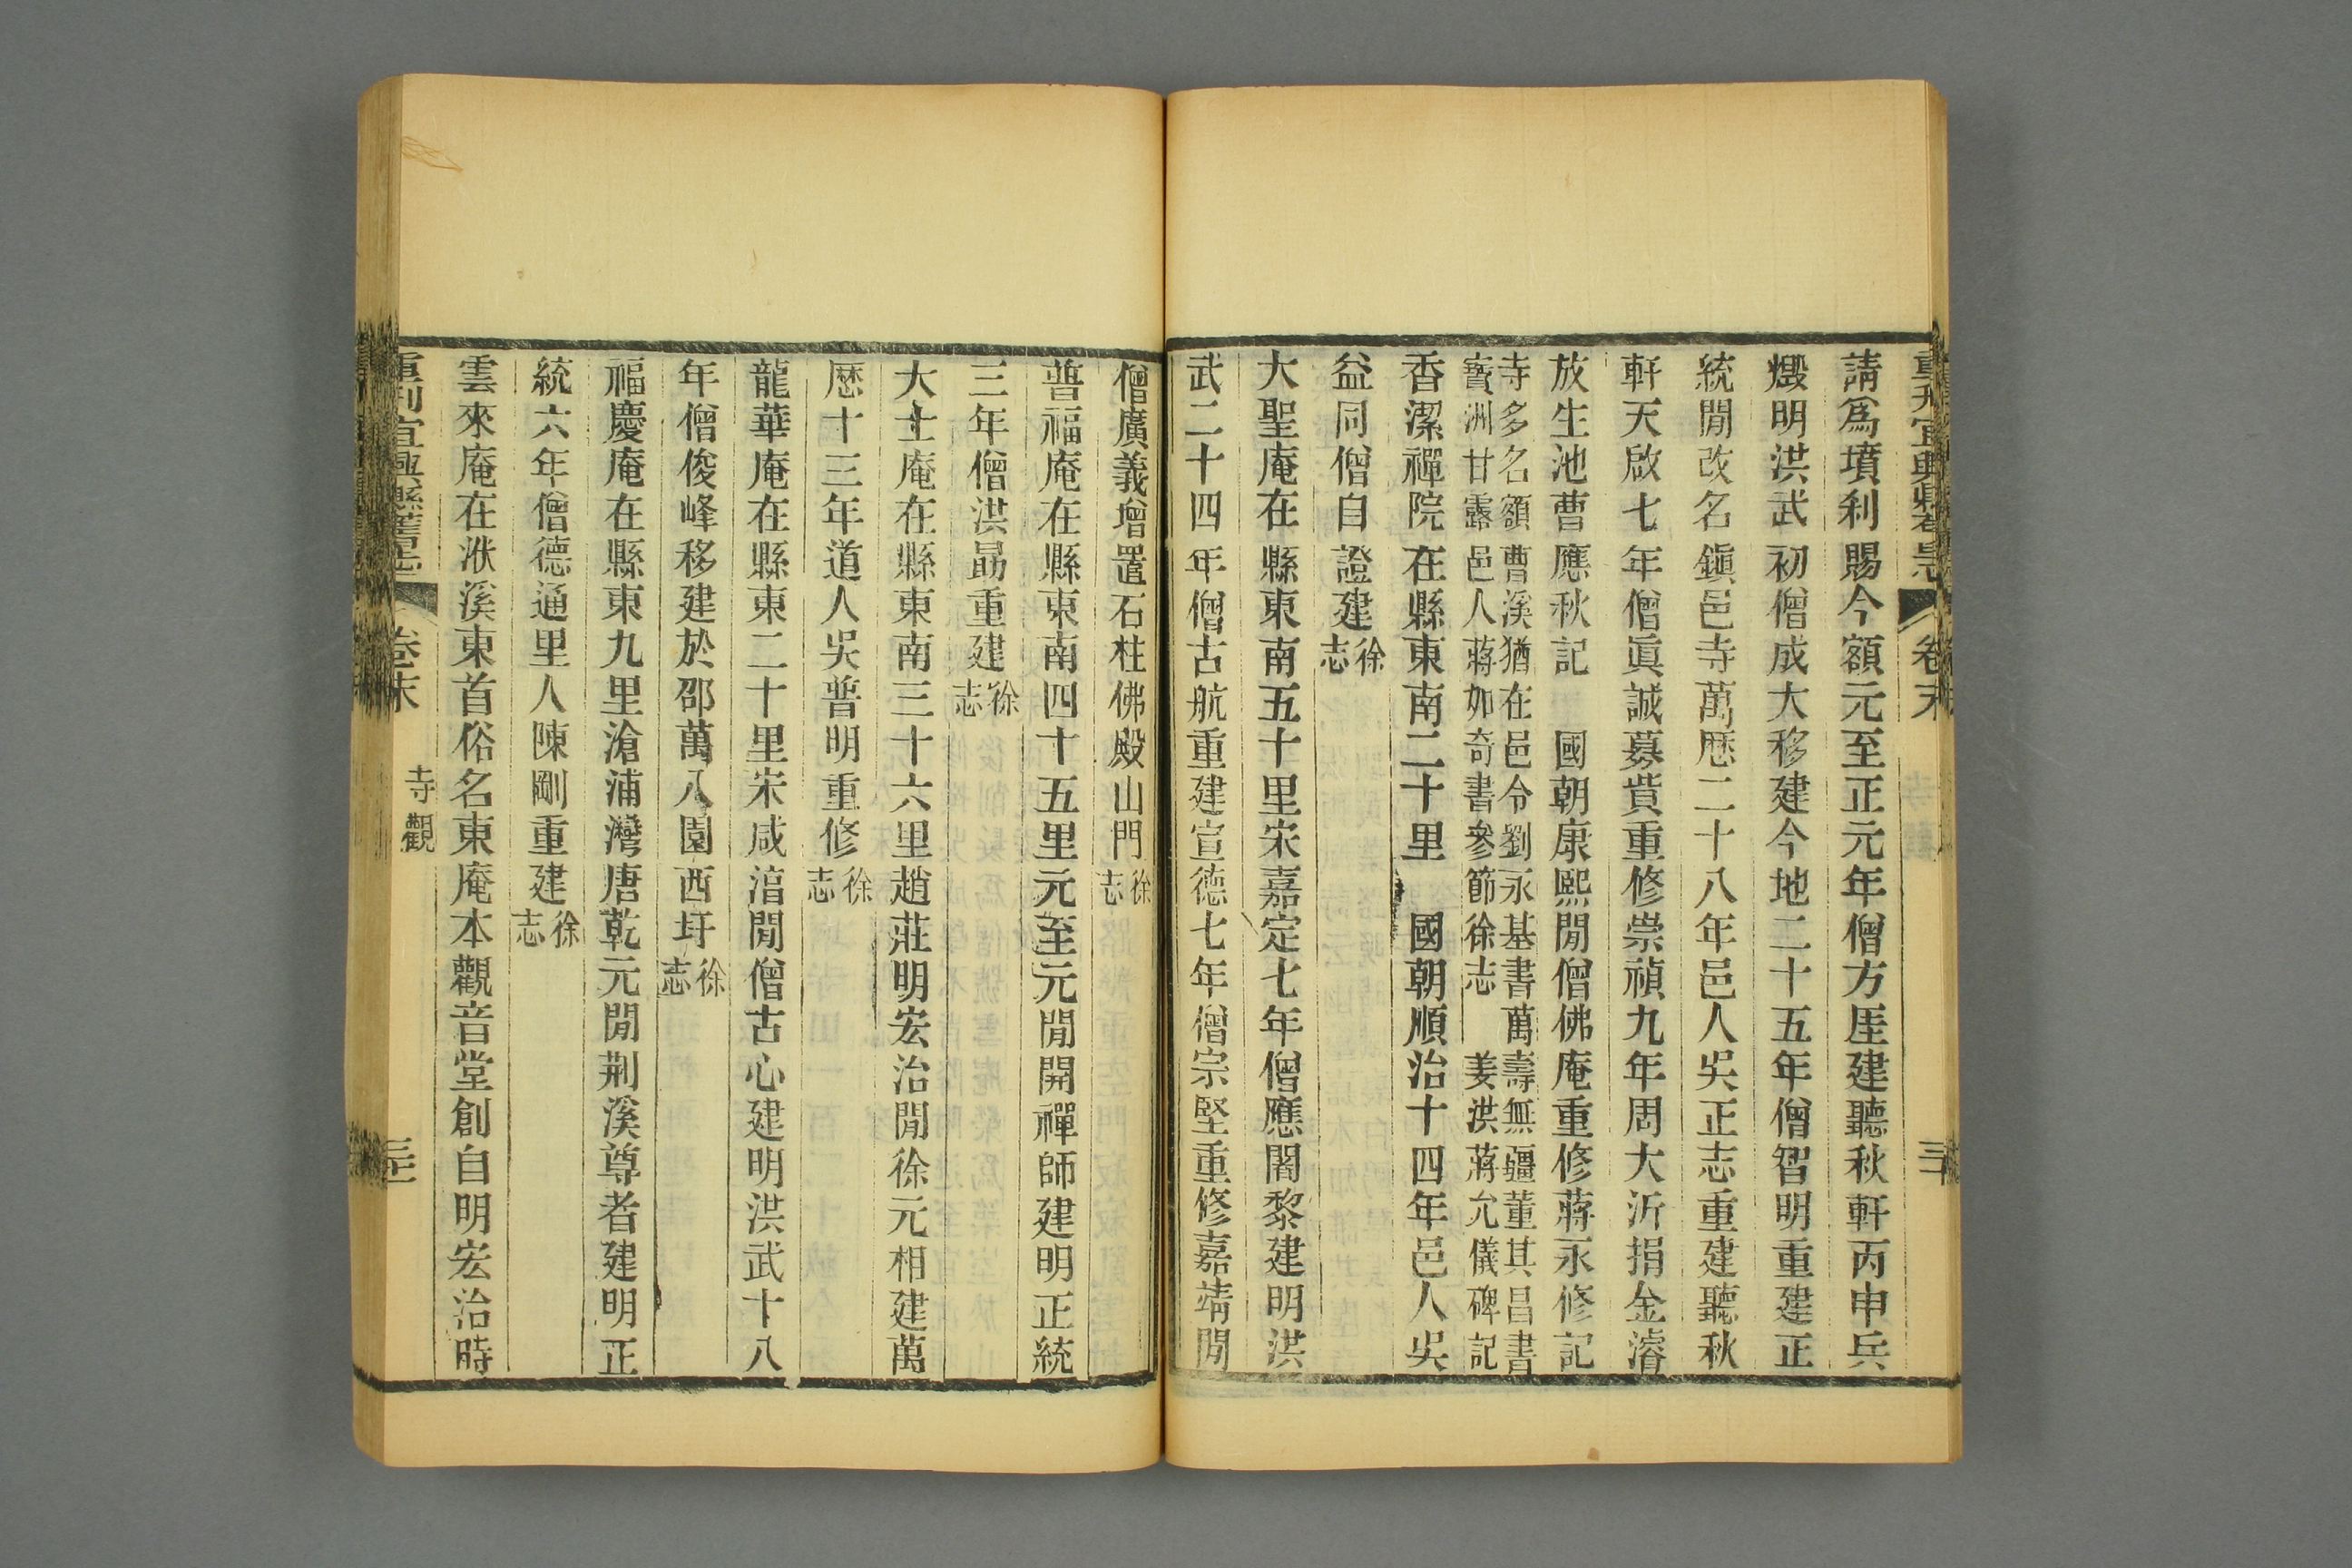 重刋宜興縣舊志 卷末
請爲墳刹賜今額元至正元年僧方厓建聽秋軒丙申兵
燬明洪武初僧成大移建今地二十五年僧智明重建正
統閒改名鎭邑寺萬歷二十八年邑人吳正志重建聽秋
軒天啟七年僧眞誠募貲重修崇禎九年周大沂捐金濬
放生池曹應秋記 國朝康熙閒僧佛庵重修蔣永修記
寺多名額曹溪猶在邑令劉永基書萬壽無疆董其昌書
寳洲甘露邑人蔣如奇書參節徐志 姜洪蔣允儀碑記
香潔禪院在縣東南二十里 國朝順治十四年邑人吳
益同僧自證建徐志
大聖庵在縣東南五十里宋嘉定七年僧應闍黎建明洪
武二十四年僧古航重建宣德七年僧宗堅重修嘉靖閒
僧廣義增置石柱佛殿山門徐志
普福庵在縣東南四十五里元至元閒開禪師建明正統
三年僧洪勗重建徐志
大士庵在縣東南三十六里趙莊明宏治閒徐元相建萬
歷十三年道人吳普明重修徐志
龍華庵在縣東二十里宋咸湻閒僧古心建明洪武十八
年僧俊峰移建於邵萬八園西圩徐志
福慶庵在縣東九里滄浦灣唐乾元閒荆溪尊者建明正
統六年僧德通里人陳剛重建徐志
雲來庵在洑溪東首俗名東庵本觀音堂創自明宏治時
重刋宜興縣舊志 卷末 寺觀